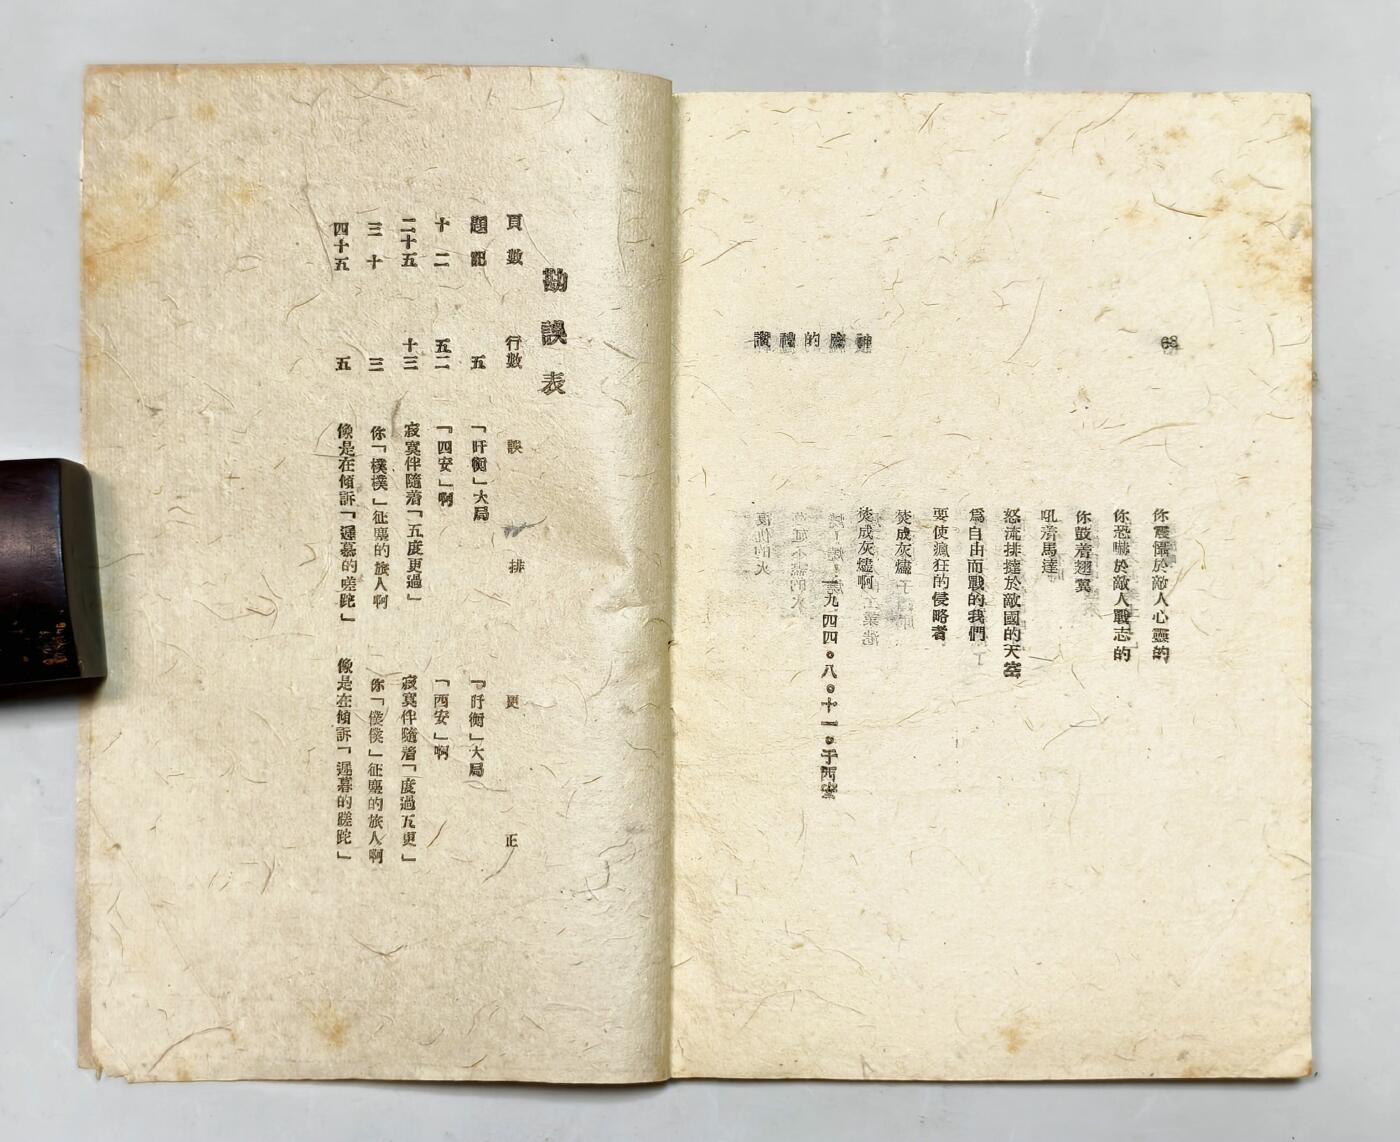 68
神鷹的禮讚
你震懾於敵人心靈的
你恐嚇於敵人戰志的
你鼓着翅翼
吼着馬達
怒流排撻於敵國的天空
爲自由而戰的我們
要使瘋狂的侵略者
焚成灰燼
焚成灰燼啊
一九四四。八。十一。于西安
勘誤表
頁數 行數 誤排 更正
題記 五 「盱衡」大局 「盱衡」大局
十二 五二 「四安」啊 「西安」啊
二十五 十三 寂寞伴隨着「五度更過」 寂寞伴隨着「度過五更」
三十 三 你「樸樸」征塵的旅人啊 你「僕僕」征塵的旅人啊
四十五 五 像是在傾訴「遲慕的嗟跎」 像是在傾訴「遲暮的蹉跎」